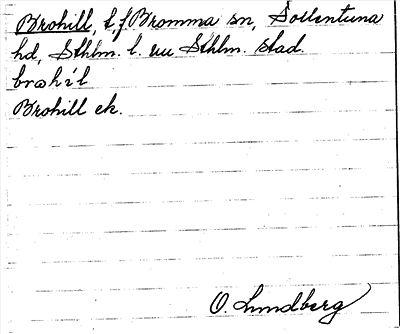 Brohill, t. f. Bromma sn, Sollentuna
hd, Sthlm. l. nu Sthlm. stad.
brohil
Brohill ek.
O. Lundberg